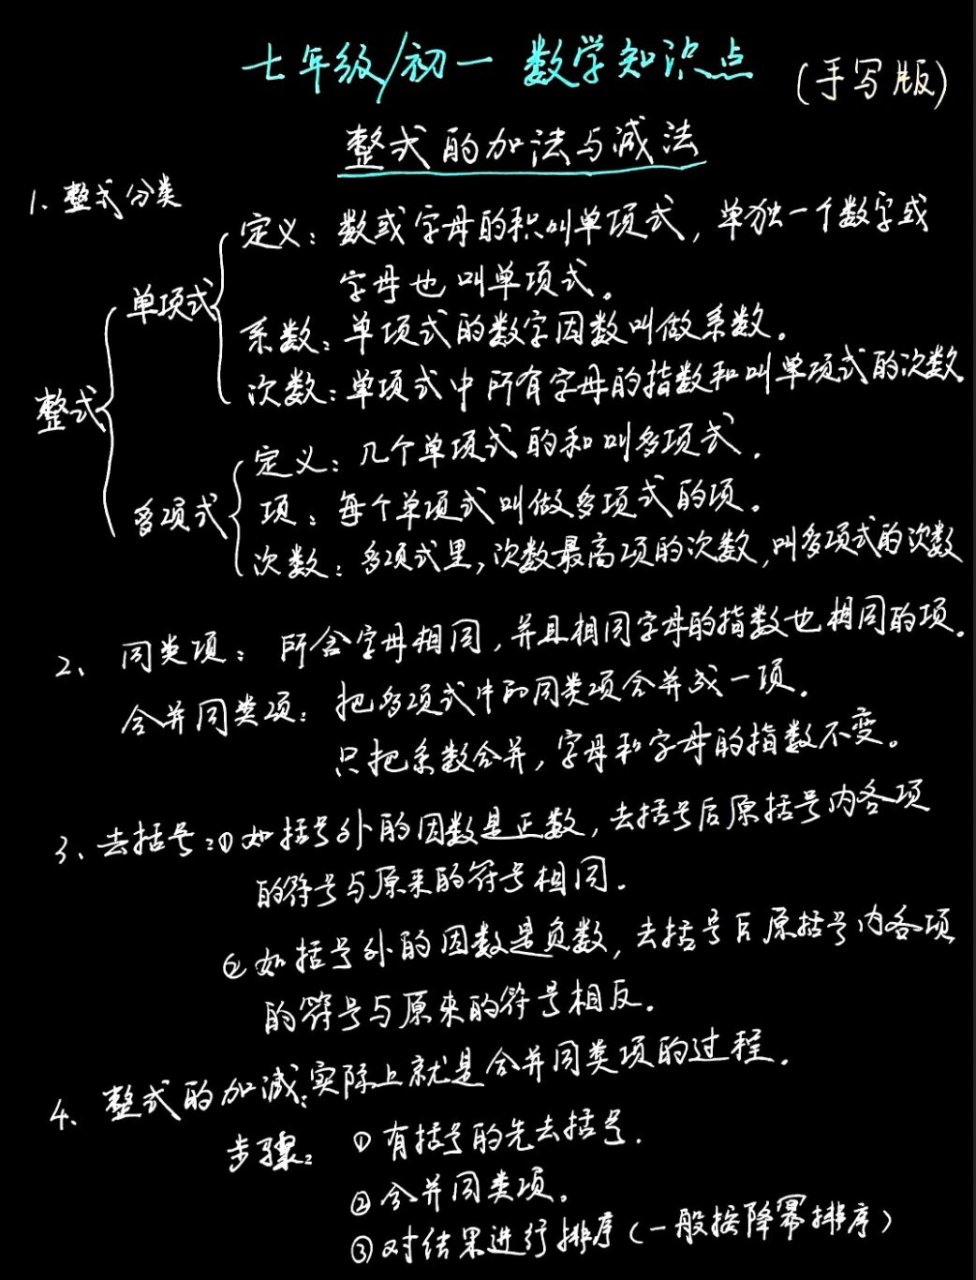 七年级/初一 数学知识点 (手写版)
整式的加法与减法
1. 整式分类
定义：数或字母的积叫单项式，单独一个数字或
字母也叫单项式。
单项式
系数：单项式的数字因数叫做系数。
次数：单项式中所有字母的指数和叫单项式的次数。
整式
定义：几个单项式的和叫多项式。
多项式
项：每个单项式叫做多项式的项。
次数：多项式里，次数最高项的次数，叫多项式的次数
2、同类项：所含字母相同，并且相同字母的指数也相同的项。
合并同类项：把多项式中的同类项合并成一项。
只把系数合并，字母和字母的指数不变。
3、去括号：①如括号外的因数是正数，去括号后原括号内各项
的符号与原来的符号相同。
②如括号外的因数是负数，去括号后原括号内各项
的符号与原来的符号相反。
4、整式的加减：实际上就是合并同类项的过程。
步骤：①有括号的先去括号.
②合并同类项。
③对结果进行排序(一般按降幂排序)